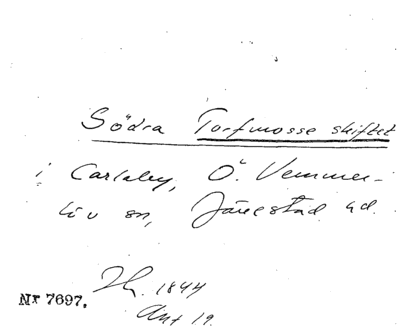 Södra Torfmosse skiftet
i Carlsby, Ö. Vemmer-
löv sn, Järrestad hd.
1844
Akt 19.
Nr 7697.